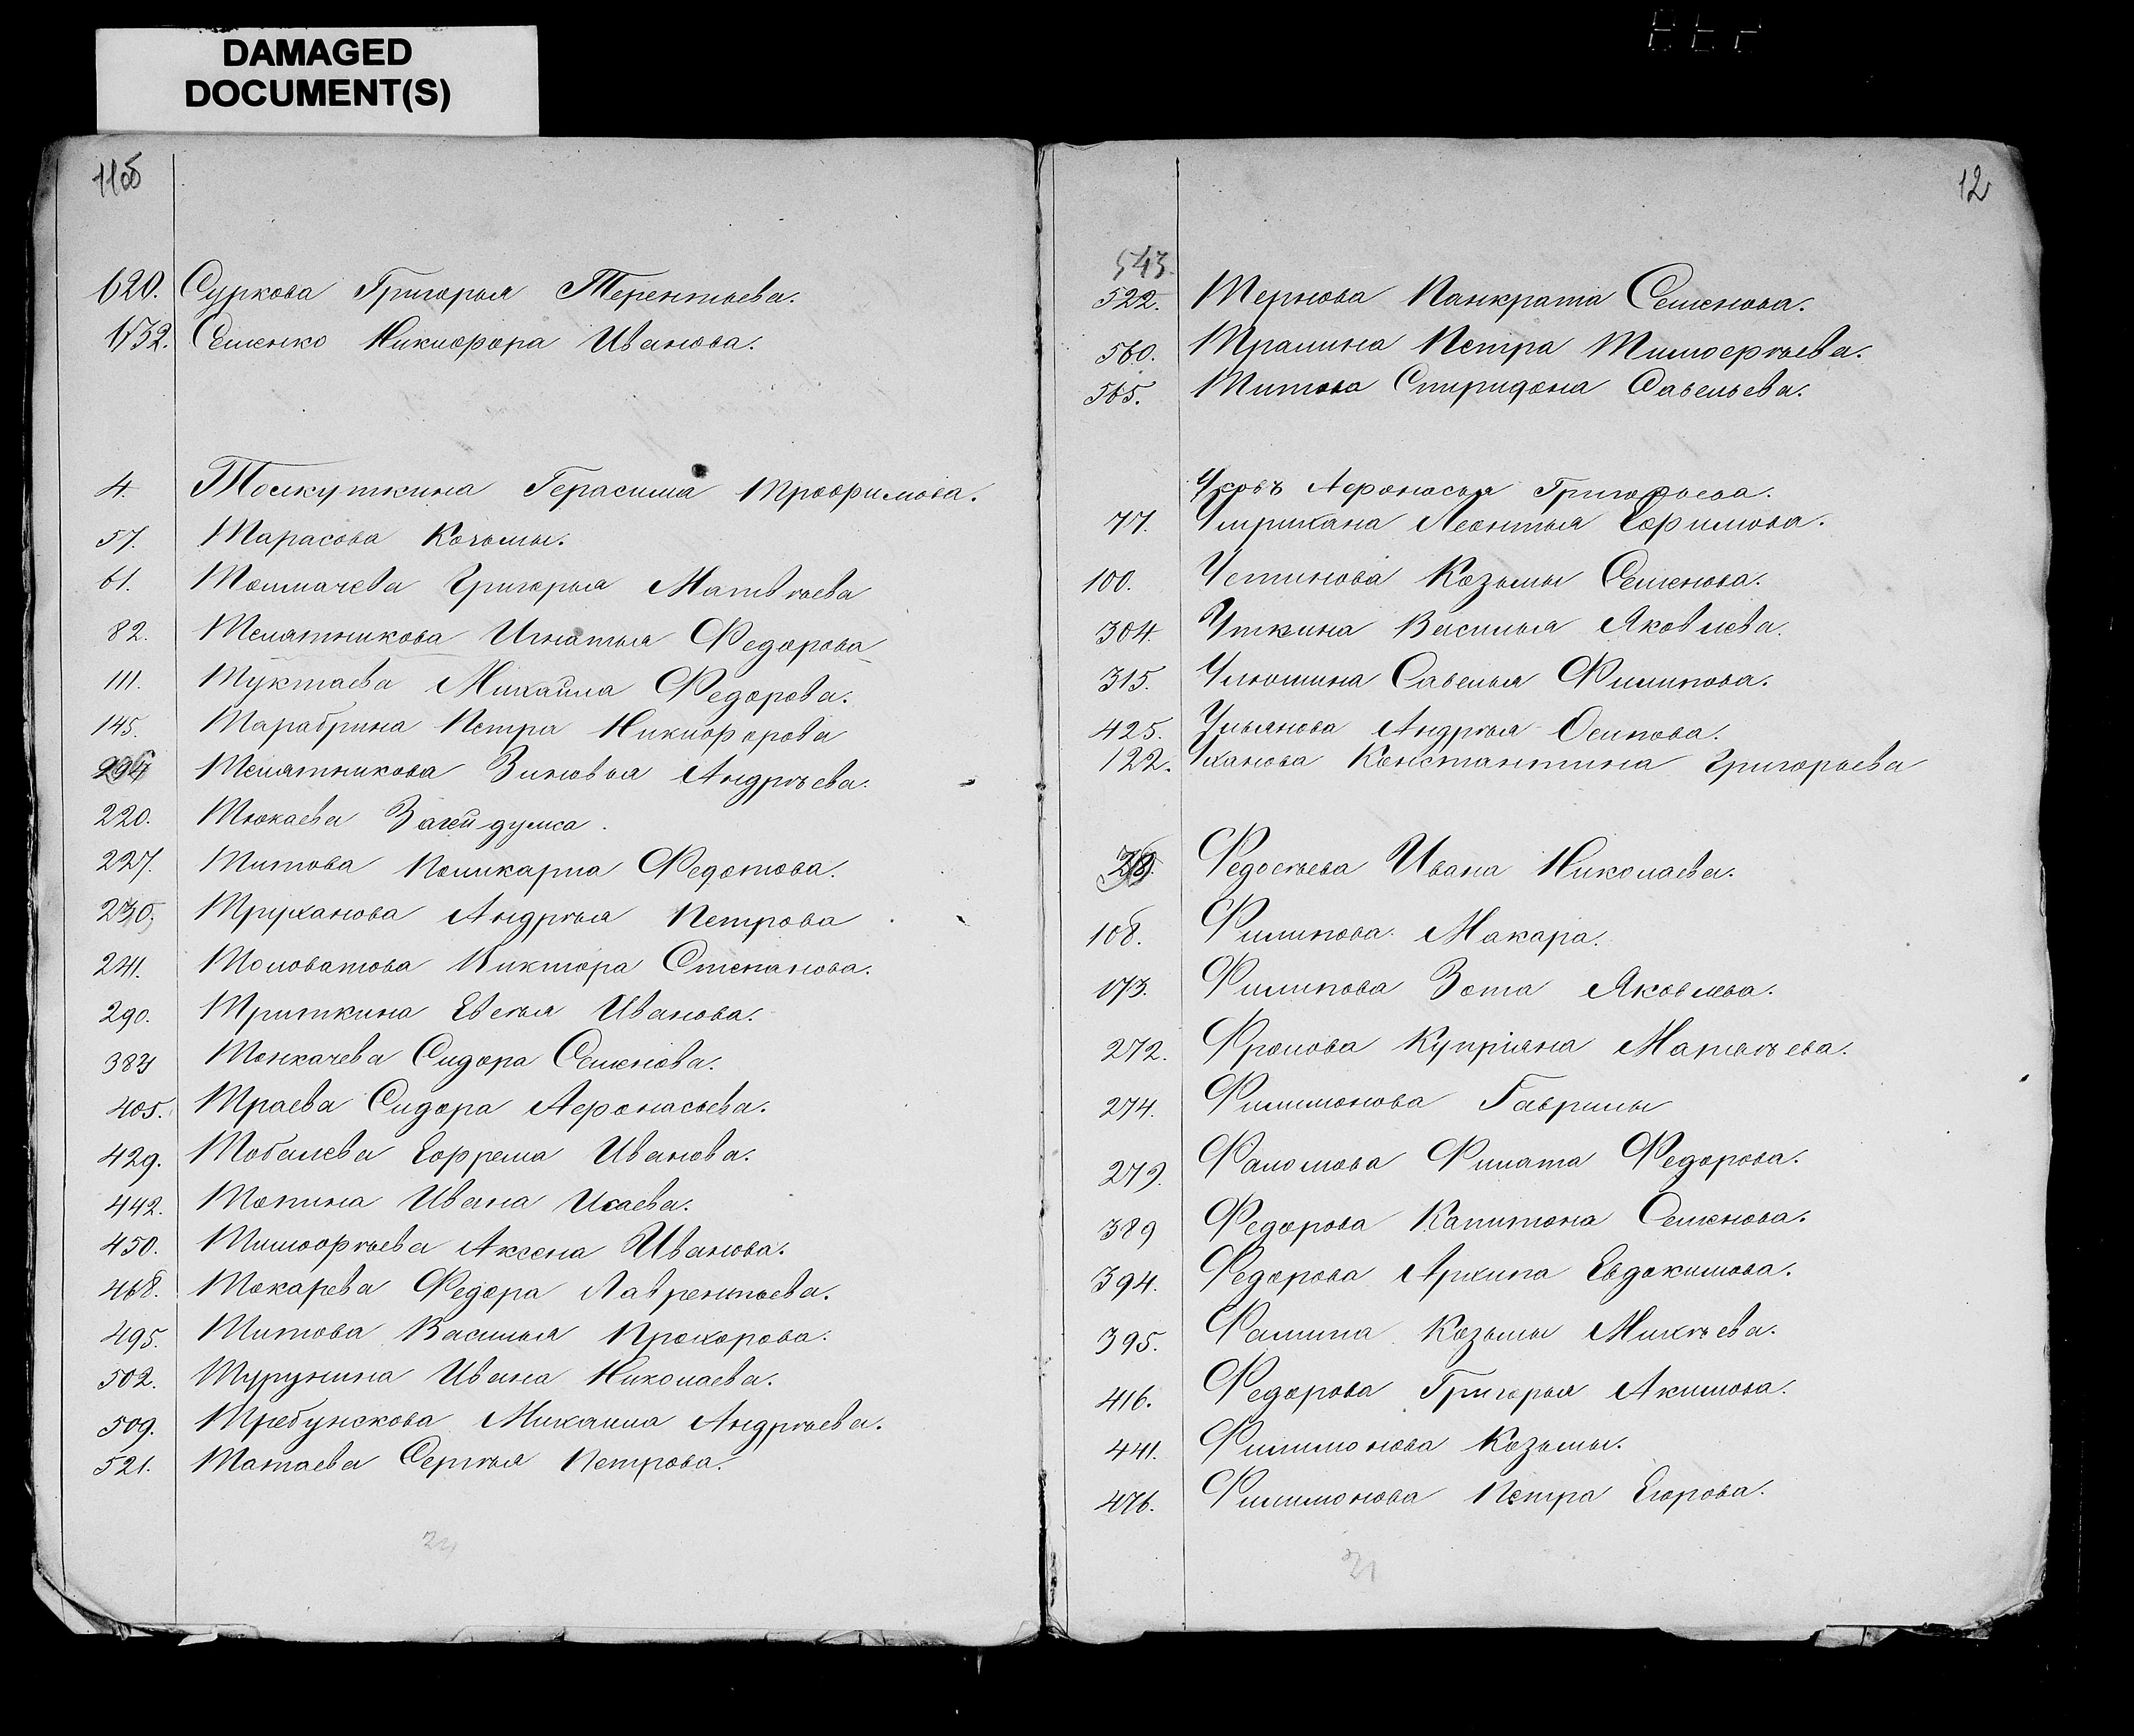 DAMAGED
DOCUMENT(S)
11об
620. Суркова Григорья Терентьева.
632. Семенко Никиофора Иванова.
4. Толкуткина Герасима Трофимова.
57. Тарасова Козьмы.
61. Толмачева Григорья Матвѣева
82. Телятникова Игнатья Федорова
111. Туктаева Михаила Федорова.
145. Тарабрина Петра Никиофорова
Телятникова Зиновья Андрѣева.
220. Тюкаева
227. Титова Поликарпа Федотова.
230. Труханова Андрѣя Петрова
241. Толоватова Виктора Степанова.
290. Триткина Евсѣя Иванова.
383 Толкачева Сидора Семенова.
405. Траева Сидора Афонасьева.
429. Тобалева Ефрема Иванова.
442. Топина Ивана Исаева.
450. Тимофѣева Аксена Иванова.
468. Токарева Федора Лаврентьева.
495. Титова Василья Прохорова.
502. Турунина Ивана Николаева.
509. Требунскова Михаила Андрѣева.
521. Татаева Сергѣя Петрова.
12
543.
522. Тернова Панкрата Семенова.
560. Тралина Петра Тимофѣева.
565. Титова Спиридона Савельева.
Афонасья Григорьева.
77. Леонтья Ефимова.
100. Устинова Козьмы Семенова.
304. Уткина Василья Яковлева.
315. Улюшина Савелья Филипова.
425. Ульянова Андрѣя Осипова.
122. Уханова Константина Григорьева
28. Федосѣева Ивана Николаева.
108. Филипова Макара.
173. Филипова Зота Яковлева.
272. Фролова Купріяна Матвѣева.
274. Филимонова Гаврилы
279. Филата Федорова.
389 Федорова Капитона Семенова.
394. Федорова Архипа Евдокимова.
395. Фалина Козьмы Михѣева.
416. Федорова Григорья Акимова.
441. Филимонова Козьмы.
476. Филимонова Петра Егорова.
21